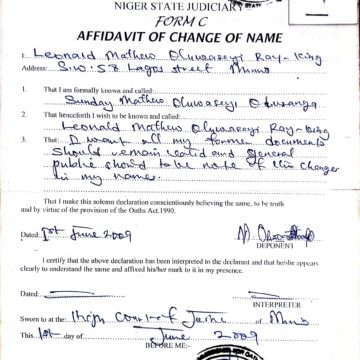 NIGER STATE JUDICIARY
FORM C
AFFIDAVIT OF CHANGE OF NAME
I: Leonald Mathew Oluwaseyi Ray-King
Address: S.W. 58 Lagos Street Minna
1. That I am formally known and called:
Sunday Mathew Oluwaseyi
2. That henceforth I wish to be known and called:
Leonald Mathew Oluwaseyi Ray-King
3. That: I want all my former documents
should remain valid and general
public should to be note of this changes
in my name.
That I make this solemn declaration conscientiously believing the same, to be truth
and by virtue of the provision of the Oaths Act.1990.
Dated: 1st June 2009
DEPONENT
I certify that the above declaration has been interpreted to the declarant and that he/she appears
clearly to understand the same and affixed his/her mark to it in my presence.
Dated:
INTERPRETER
Sworn to at the: High Court of Justice of Minna
This 1st day of June 2009
BEFORE ME:-